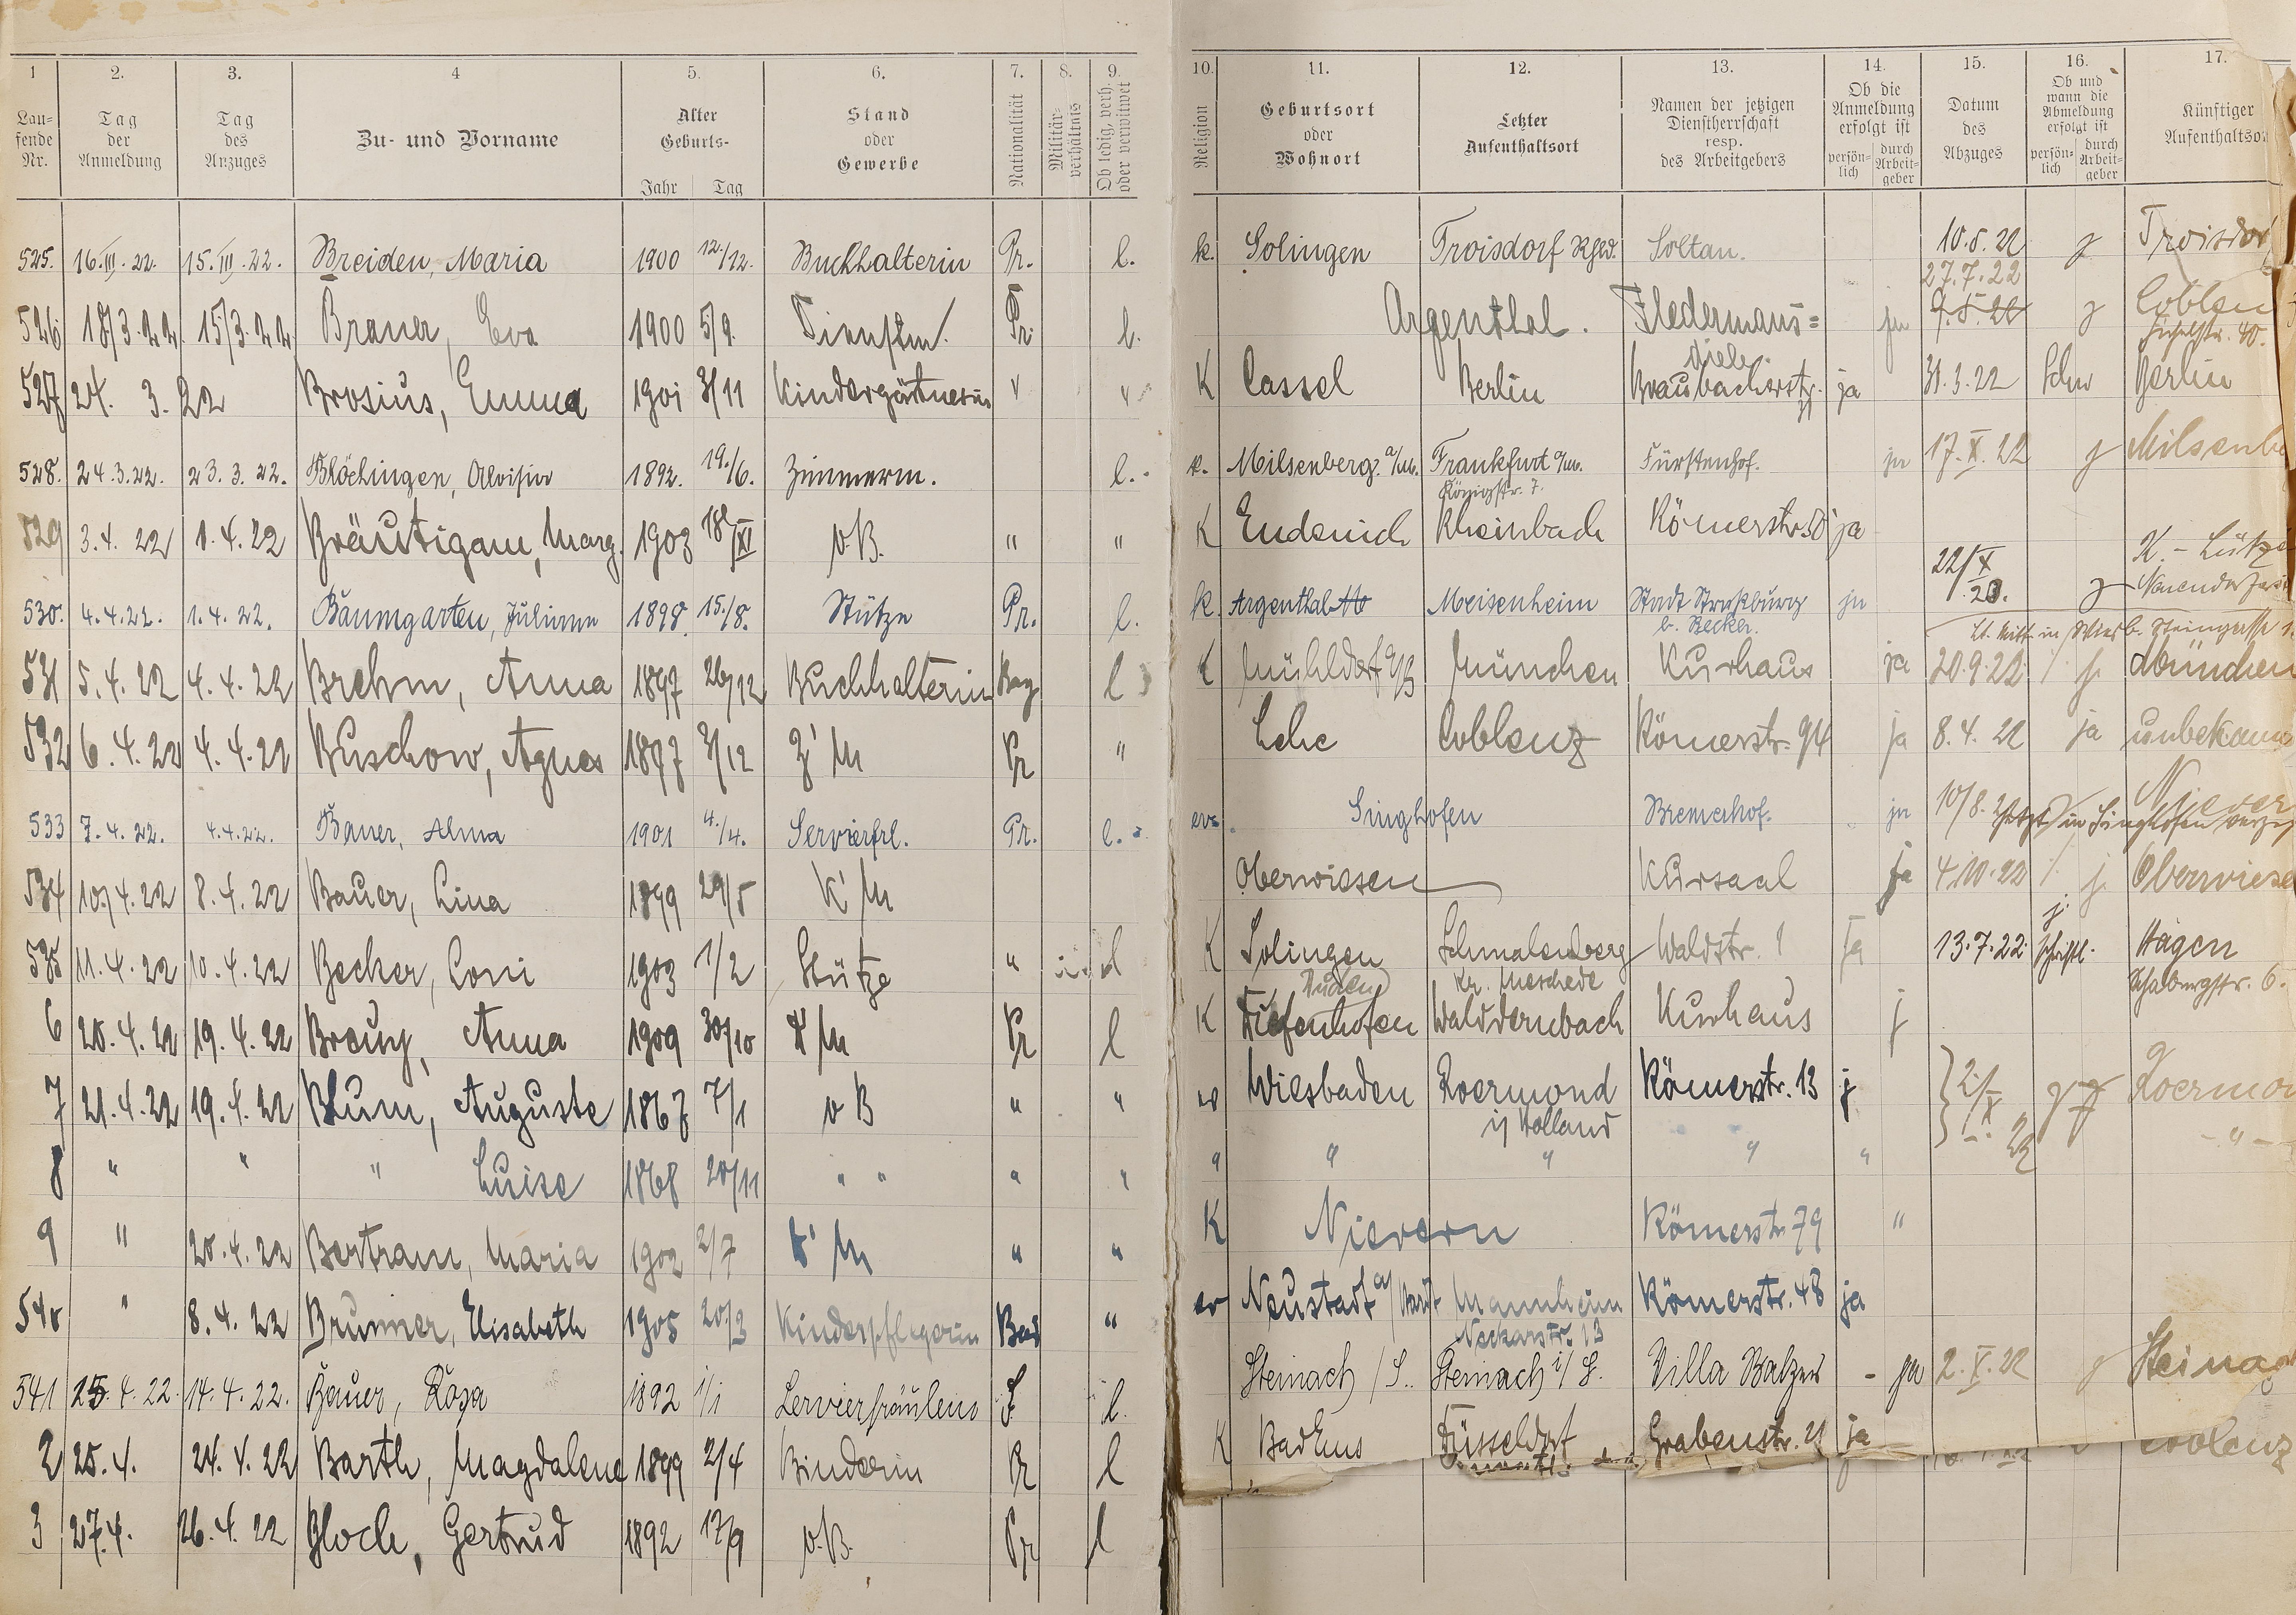 1 2. 3. 4 5. 6. 7. 8. 9. 10. 11. 12. 13. 14. 15. 16. 17.
Laufende Nr. Tag der Anmeldung Tag des Anzuges Zu- und Vorname Alter Geburts- Jahr Tag Stand oder Gewerbe Nationalität Militärverhältnis Ob ledig, verh. oder verwitwet Religion Geburtsort oder Wohnort Letzter Aufenthaltsort Namen der jetzigen Dienstherrschaft resp. des Arbeitgebers Ob die Anmeldung erfolgt ist persönlich durch Arbeitgeber Datum des Abzuges Ob und wann die Abmeldung erfolgt ist persönlich durch Arbeitgeber Künftiger Aufenthaltsor
525. 16.III.22. 15.III.22. Breiden, Maria 1900 12./12. Buchhalterin Pr. l. k. Solingen Troisdorf Rhld. Soltau. 10.5.22 j Troisdor
27.7.22
526 18/3.22. 15/3.22. Brauer, Eva 1900 5/9. Dienstm. Pr. l. Argenthal. Fledermaus= diele. ja j Coblen
527 24. 3. 22 Brosius, Emma 1901 3/11 Kindergärtnerin K Cassel Berlin Braubacherstr. ja 31.3.22 Schr Berlin
528. 24.3.22. 23.3.22. Blöchingen, Aloisia 1892. 19./6. Zimmerm. l. k. Milsenberg a/M. Frankfurt a/M. Fürstenhof. ja 17.X.22 j Milsenbe
Königstr. 7.
529 3.4.22 1.4.22 Bräutigam, Marg. 1903 18/XI v.B. " " K Endenich Rheinbach Römerstr. 50 ja
530. 4.4.22. 1.4.22. Baumgarten, Juliane 1898. 15./8. Stütze Pr. l. k. Argenthal Meisenheim Stadt Straßburg b. Becker. ja 22/X 23. j K.-Lütze
531 5.4.22 4.4.22 Brehm, Anna 1897 26/12 Buchhalterin Bay l K Mühldorf a/B München Kurhaus ja 20.9.22 j. München
532 6.4.22 4.4.22 Buschow, Agnes 1897 3/12 Z'M Pr " Lehe Coblenz Römerstr. 94 ja 8.4.22 ja unbekann
533 7.4.22. 4.4.22. Bauer, Alma 1901 4./4. Servierfrl. Pr. l. ev. Singhofen Bremerhof. ja 10/8. Niever
in Singhofen
534 10./4.22 8.4.22 Bauer, Lina 1899 29/5 K'M Oberwiesen Kursaal ja 4.10.22 j. Oberwiese
535 11.4.22 10.4.22 Becker, Toni 1903 1/2 Stütze " l K Solingen Schmalenberg Kr. Meschede Waldstr. 1 ja 13.7.22 j. Schriftl. Hagen
6 20.4.22 19.4.22 Breuy, Anna 1909 30/10 K'M Pr l K Tiefenhofen Walddernbach Kurhaus j
7 21.4.22 19.4.22 Blum, Auguste 1867 7/1 v B " " Wiesbaden Roermond i/ Holland Römerstr. 13 j 2./X 22 j Roermon
8 " " " Luise 1868 20/11 " " " " " " " " " - " -
9 " 20.4.22 Bertram, Maria 1902 2/7 K'M " " K Nievern Römerstr. 79 "
540 " 8.4.22 Brunner, Elisabeth 1905 20/3 Kinderpflegerin Bad " ev Neustadt a/Hardt Mannheim Neckarstr. 13 Römerstr. 48 ja
541 25.4.22. 14.4.22. Bauer, Rosa 1892 1/1 Servierfräulein l. Steinach /S. Steinach i/S. Villa Balzer - ja 2.X.22 j Steina
2 25.4. 24.4.22 Barth, Magdalene 1899 2/4 Binderin Pr l K Bad Ems Düsseldorf Grabenstr. 21 ja Coblenz
3 27.4. 26.4.22 Bloch, Gertrud 1892 17/9 v.B. Pr l